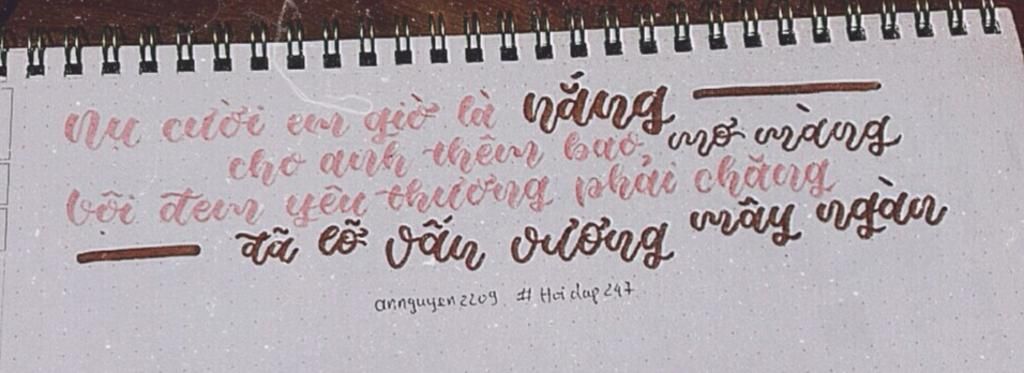 Nụ cười em giờ là nắng
cho anh thêm bao mơ màng
vội đem yêu thương phải chăng
đã lỡ vấn vương mây ngàn
annguyen2209 #Hoidap247